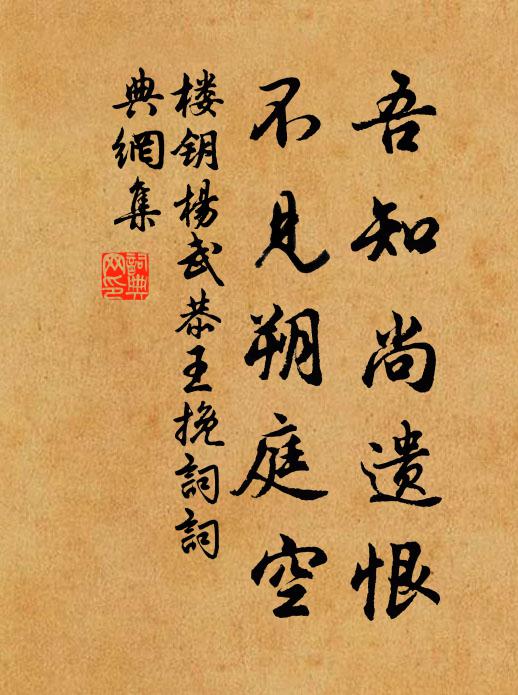 吾知尚遗恨
不见朔庭空
楼钥杨武恭王挽词詞
典網集
詞典网印